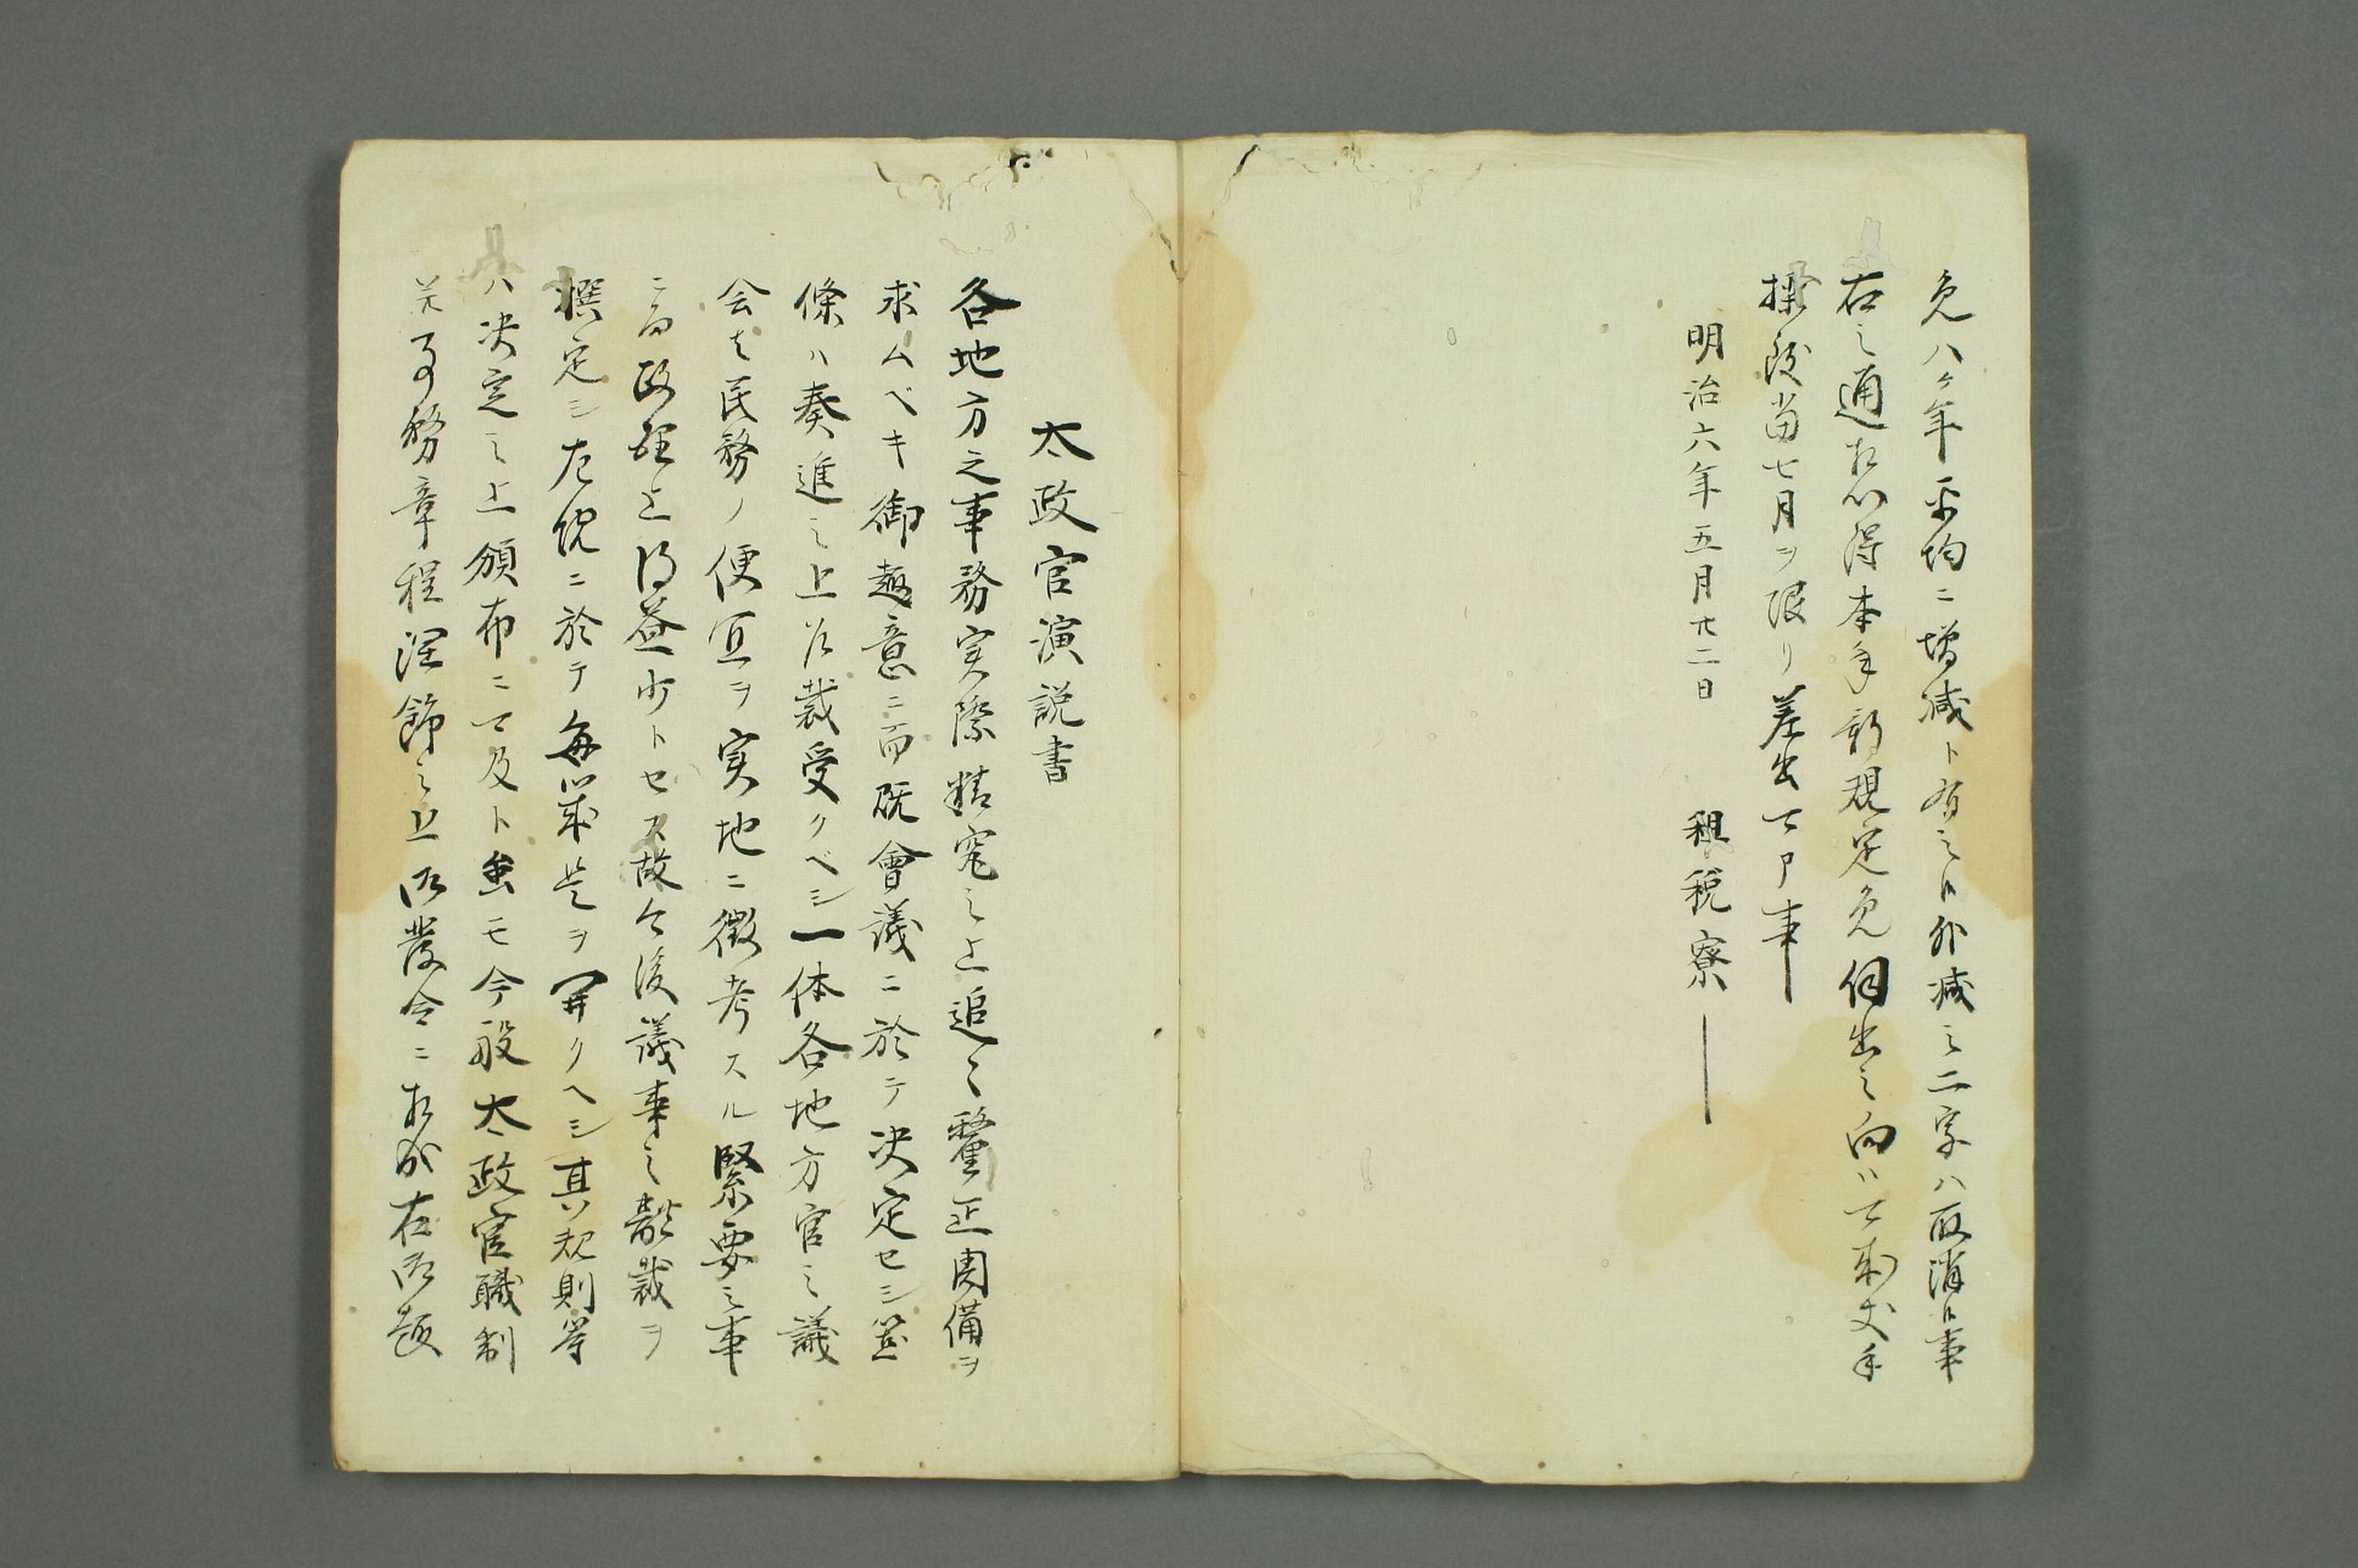 免八ケ年平均ニ増減ト有之内外減之二字ハ取消候事
右之通相心得本年新規定免伺出之向ハ可成丈手
操致当七月ヲ限リ差出可申事
明治六年五月廿二日 租税寮
太政官演説書
各地方之事務実際精究之上追々釐正周備ヲ
求ムベキ御趣意ニ而既會議ニ於テ决定セシ箇
條ハ奏進之上御裁受クベシ一体各地方官之議
会者民務ノ便宜ヲ実地ニ徴考スル緊要之事
ニ而政理上得益少トセス故今後議事之體裁ヲ
撰定シ左院ニ於テ毎歳是ヲ開クヘシ其規則等
ハ决定之上頒布ニ可及ト虽モ今般太政官職制
并事務章程潤飾之上御發令ニ相成右御趣